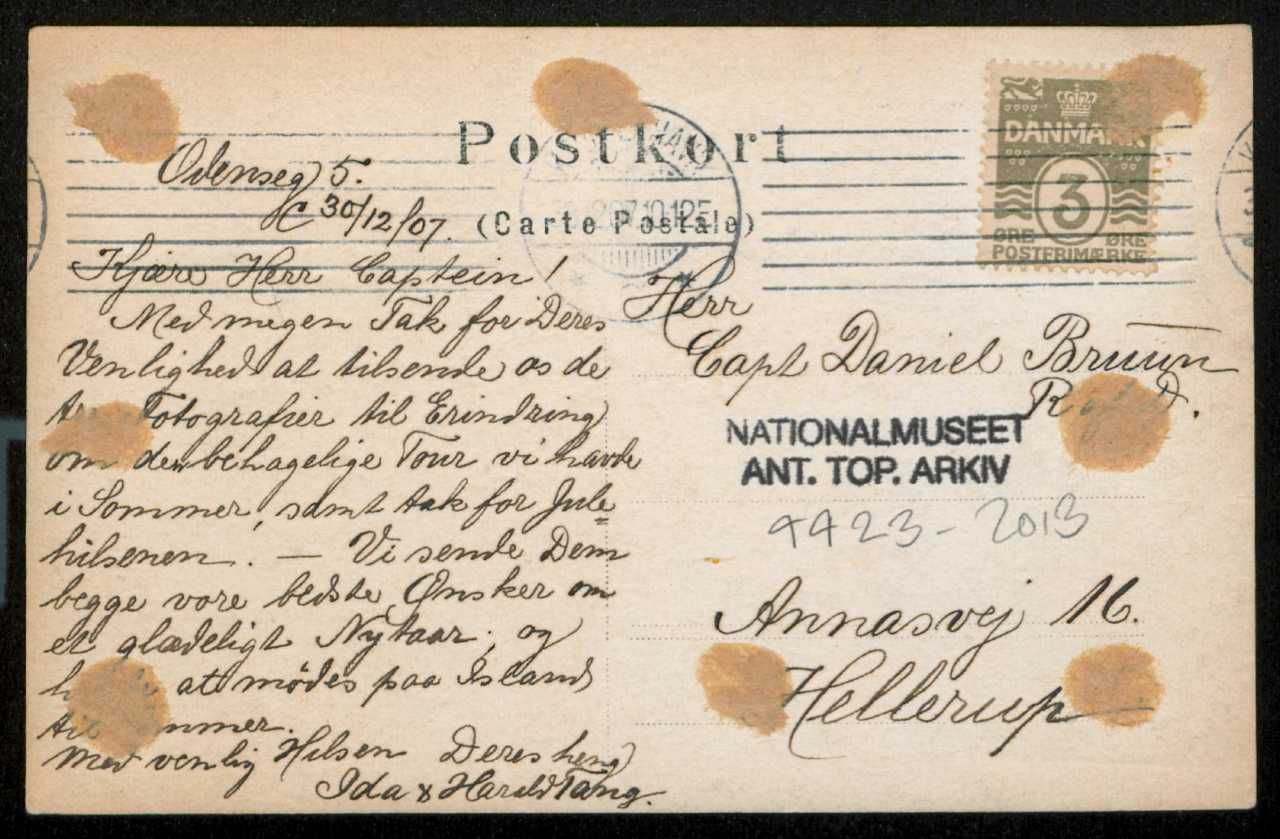 Postkort
(Carte Postale)
DANMARK
3
ØRE ØRE
POSTFRIMÆRKE
Odenseg 5.
30/12/07.
Kjære Herr Captein!
Med megen Tak for Deres
Venlighed at tilsende os de
Fotografier til Erindring
om den behagelige Tour vi havde
i Sommer, samt tak for Jule=
hilsenen. — Vi sende Dem
begge vore bedste Ønsker om
et glædeligt Nytaar, og
at mødes paa Island
til Sommer.
Med venlig Hilsen Deres heng
Ida & Harald Tang.
Herr
Capt Daniel Bruun
R. af D.
NATIONALMUSEET
ANT. TOP. ARKIV
4423-2013
Annasvej 16.
Hellerup